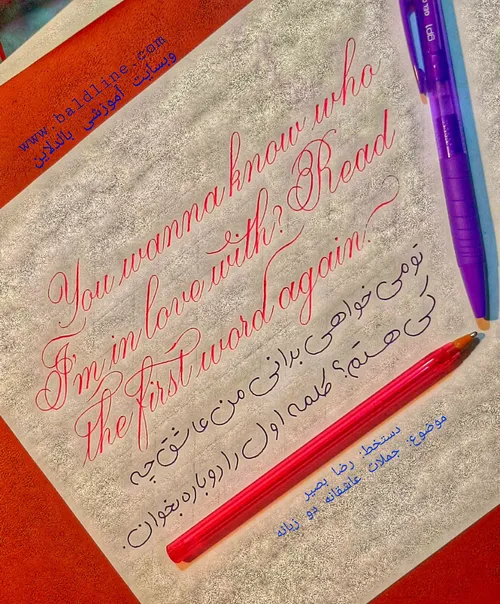 www.baldline.com
وبسایت آموزشی بالدلاین
You wanna know who
I'm in love with? Read
the first word again.
تو می خواهی بدانی من عاشق چه
کسی هستم؟ کلمه اول را دوباره بخوان.
دستخط: رضا بصیر
موضوع: جملات عاشقانه دو زبانه